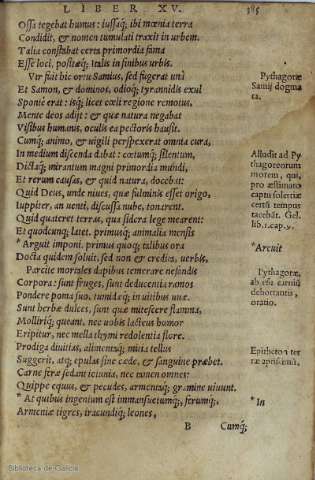 LIBER XV.
385
Ossa tegebat humus: iussaq́; ibi mœnia terra
Condidit, & nomen tumulati traxit in urbem.
Talia constabat certa primordia fama
Esse loci, positæq́; Italis in finibus urbis.
Vir fuit hic ortu Samius, sed fugerat unà
Et Samon, & dominos, odioq́; tyrannidis exul
Sponte erat: isq́; licet cœli regione remotus,
Mente deos adijt: & quæ natura negabat
Visibus humanis, oculis ea pectoris hausit.
Cumq́; animo, & uigili perspexerat omnia cura,
In medium discenda dabat: cœtumq́; silentum,
Dictaq́; mirantum magni primordia mundi,
Et rerum causas, & quid natura, docebat:
Quid Deus, unde niues, quæ fulminis esset origo,
Iuppiter, an uenti, discussa nube, tonarent.
Quid quateret terras, qua sidera lege mearent:
Et quodcunq; latet. primusq; animalia mensis
* Arguit imponi. primus quoq; talibus ora
Docta quidem soluit, sed non & credita, uerbis,
Parcite mortales dapibus temerare nefandis
Corpora: sunt fruges, sunt deducentia ramos
Pondere poma suo, tumidæq́; in uitibus uuæ.
Sunt herbæ dulces, sunt quæ mitescere flamma,
Molliriq́; queant, nec uobis lacteus humor
Eripitur, nec mella thymi redolentia flore.
Prodiga diuitias, alimentaq́; mitia tellus
Suggerit, atq; epulas sine cæde, & sanguine præbet.
Carne feræ sedant ieiunia, nec tamen omnes:
Quippe equus, & pecudes, armentaq́; gramine uiuunt.
* At quibus ingenium est immansuetumq́;, ferumq́;,
Armeniæ tigres, iracundiq́; leones,
B
Cumq́;
Pythagoræ
Samij dogma
ta.
Alludit ad Py
thagoreorum
morem, qui,
pro æstimato
captu solertiæ
certū tempus
tacebāt. Gel.
lib.1.cap.9.
*Arcuit
Pythagoræ,
ab esu carniū
dehortantis,
oratio.
Epitheton ter
ræ aptissimū.
*In
Biblioteca de Galicia